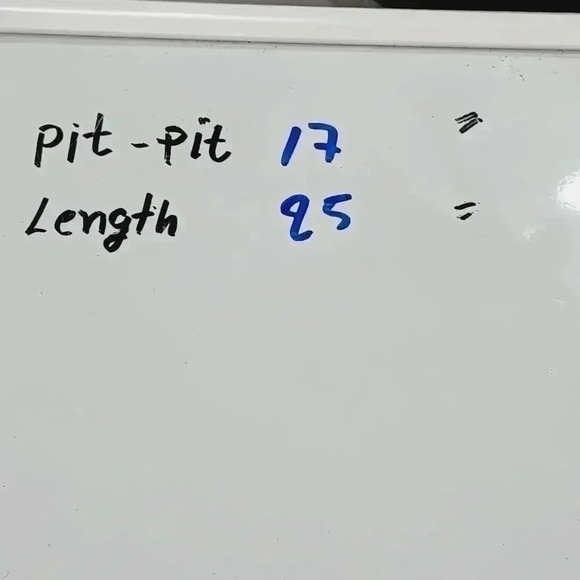 Pit-Pit 17 "
Length 25 =